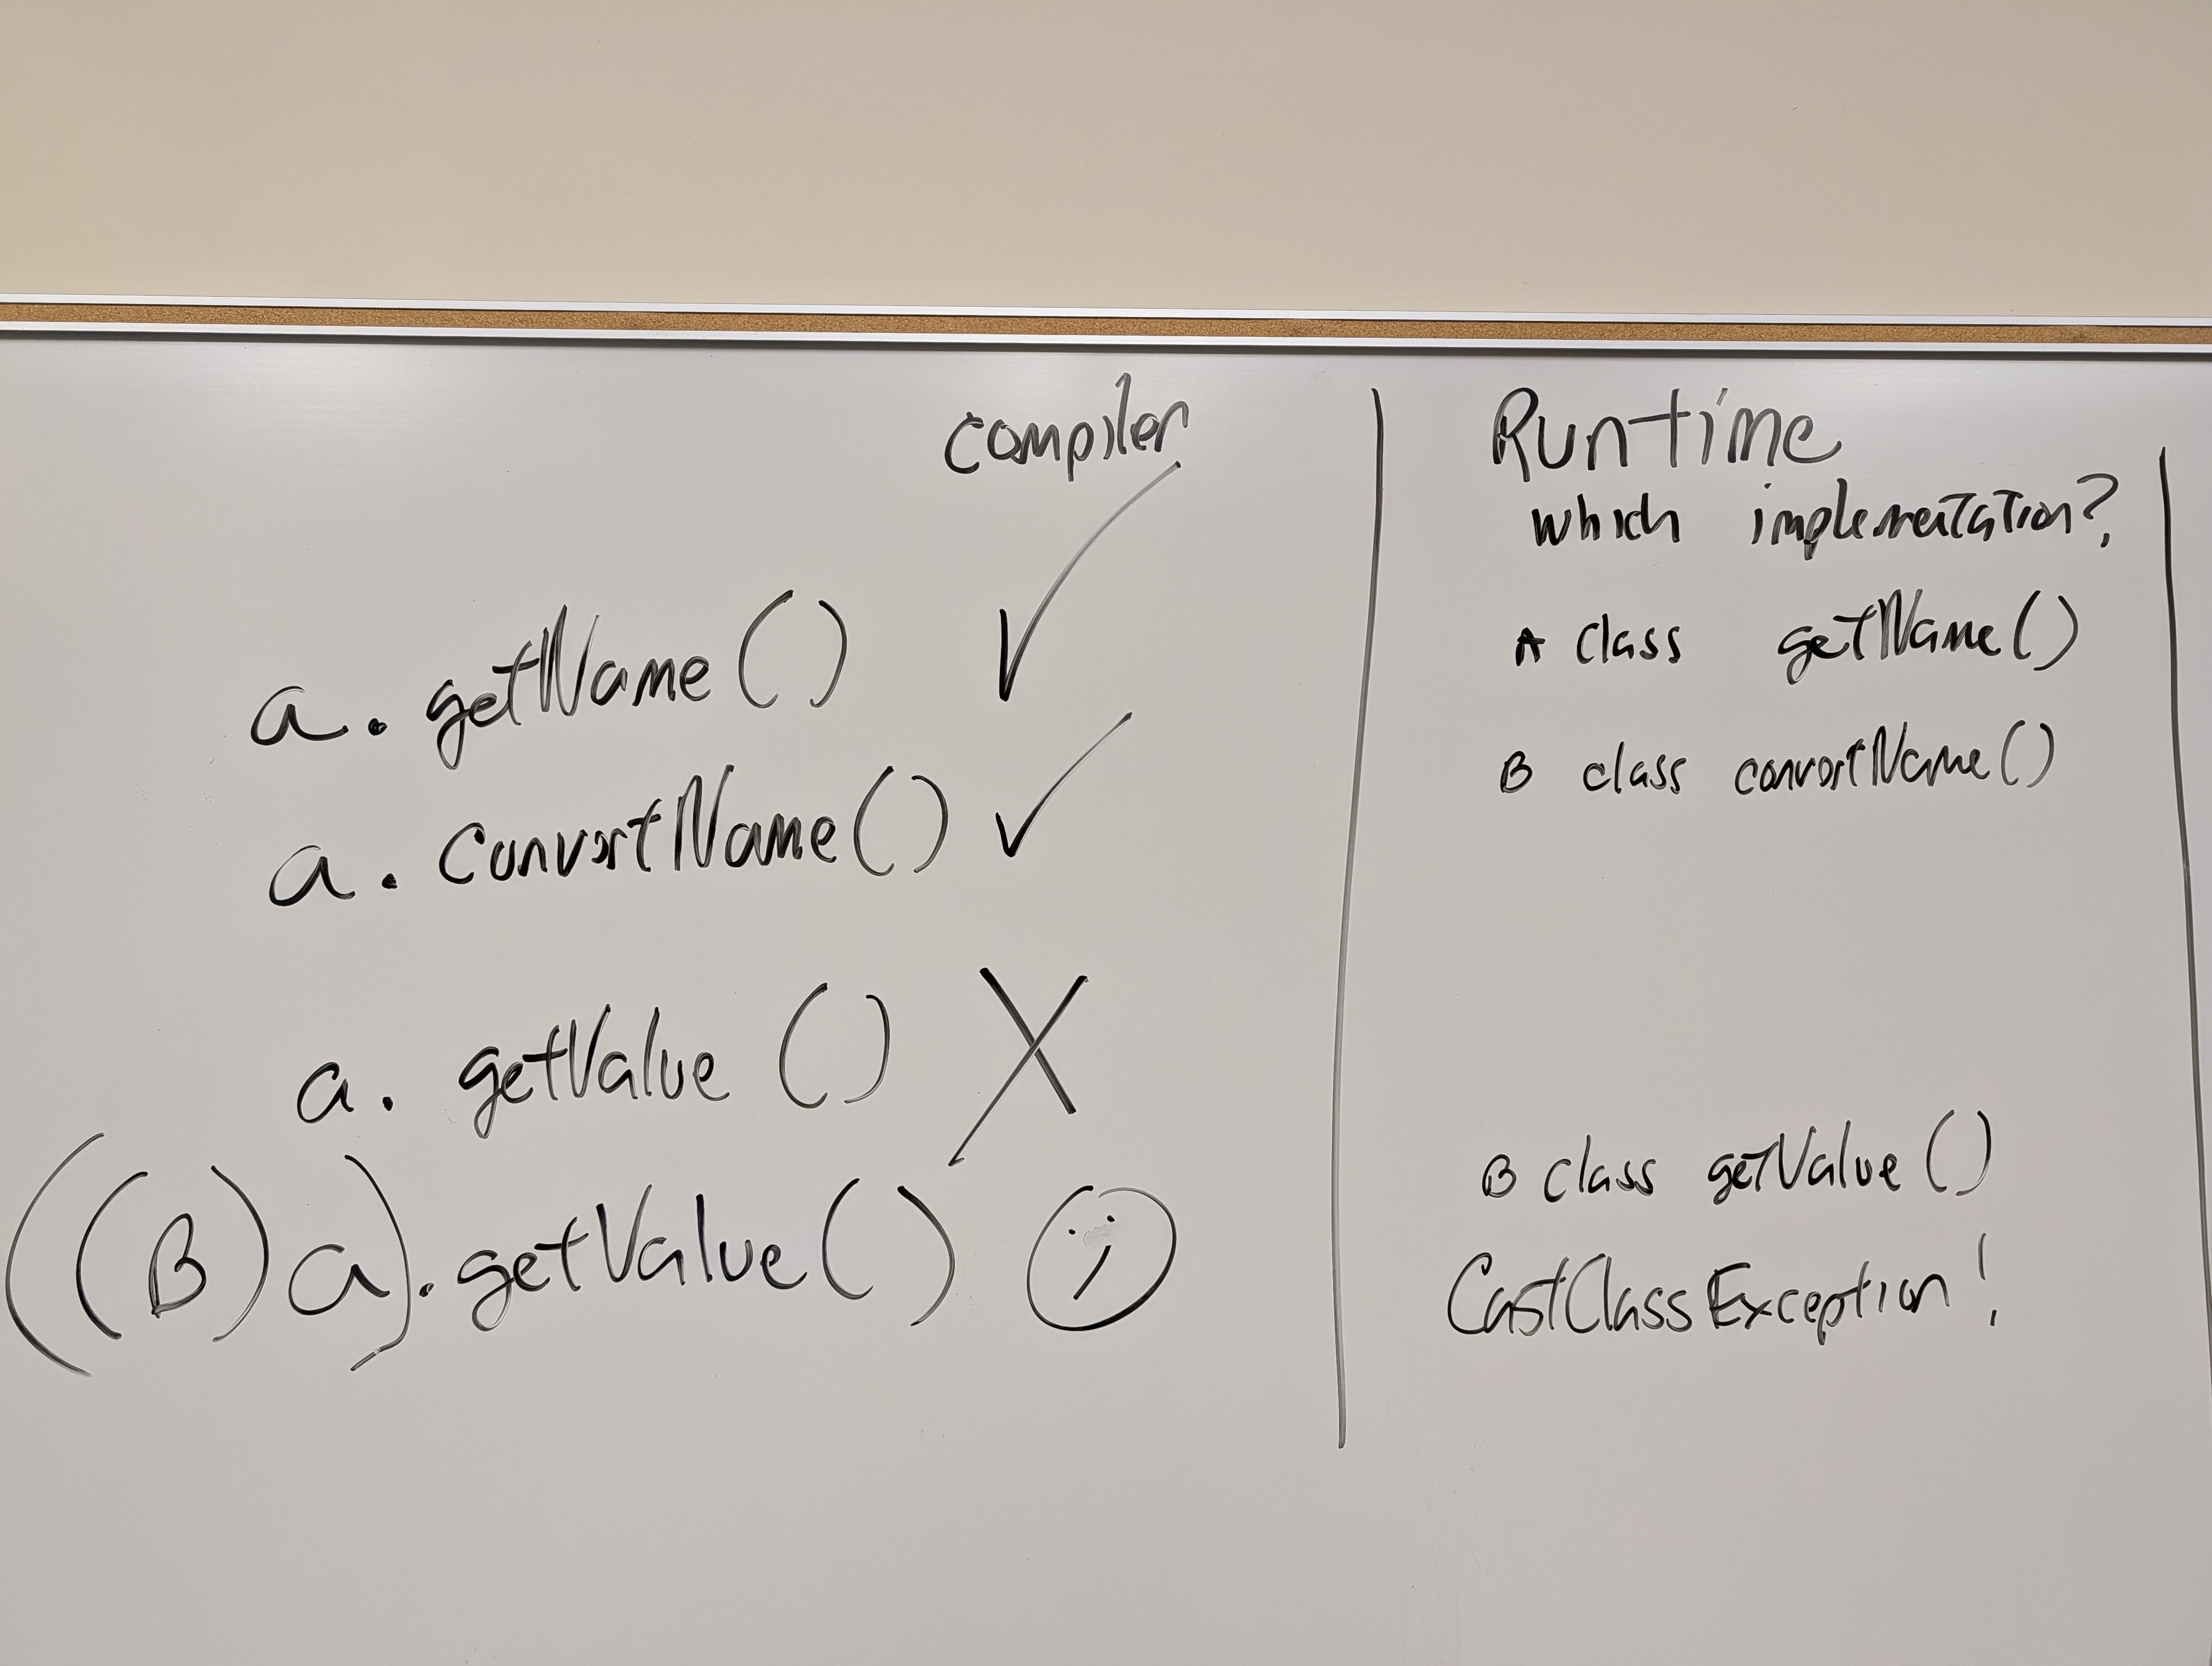 compiler
a. getName()
a. ConvertName()
a. getValue ()
((B)a).getValue()
Runtime
which implementation?
A class getName()
B class convertName()
B class getValue()
CastClassException!